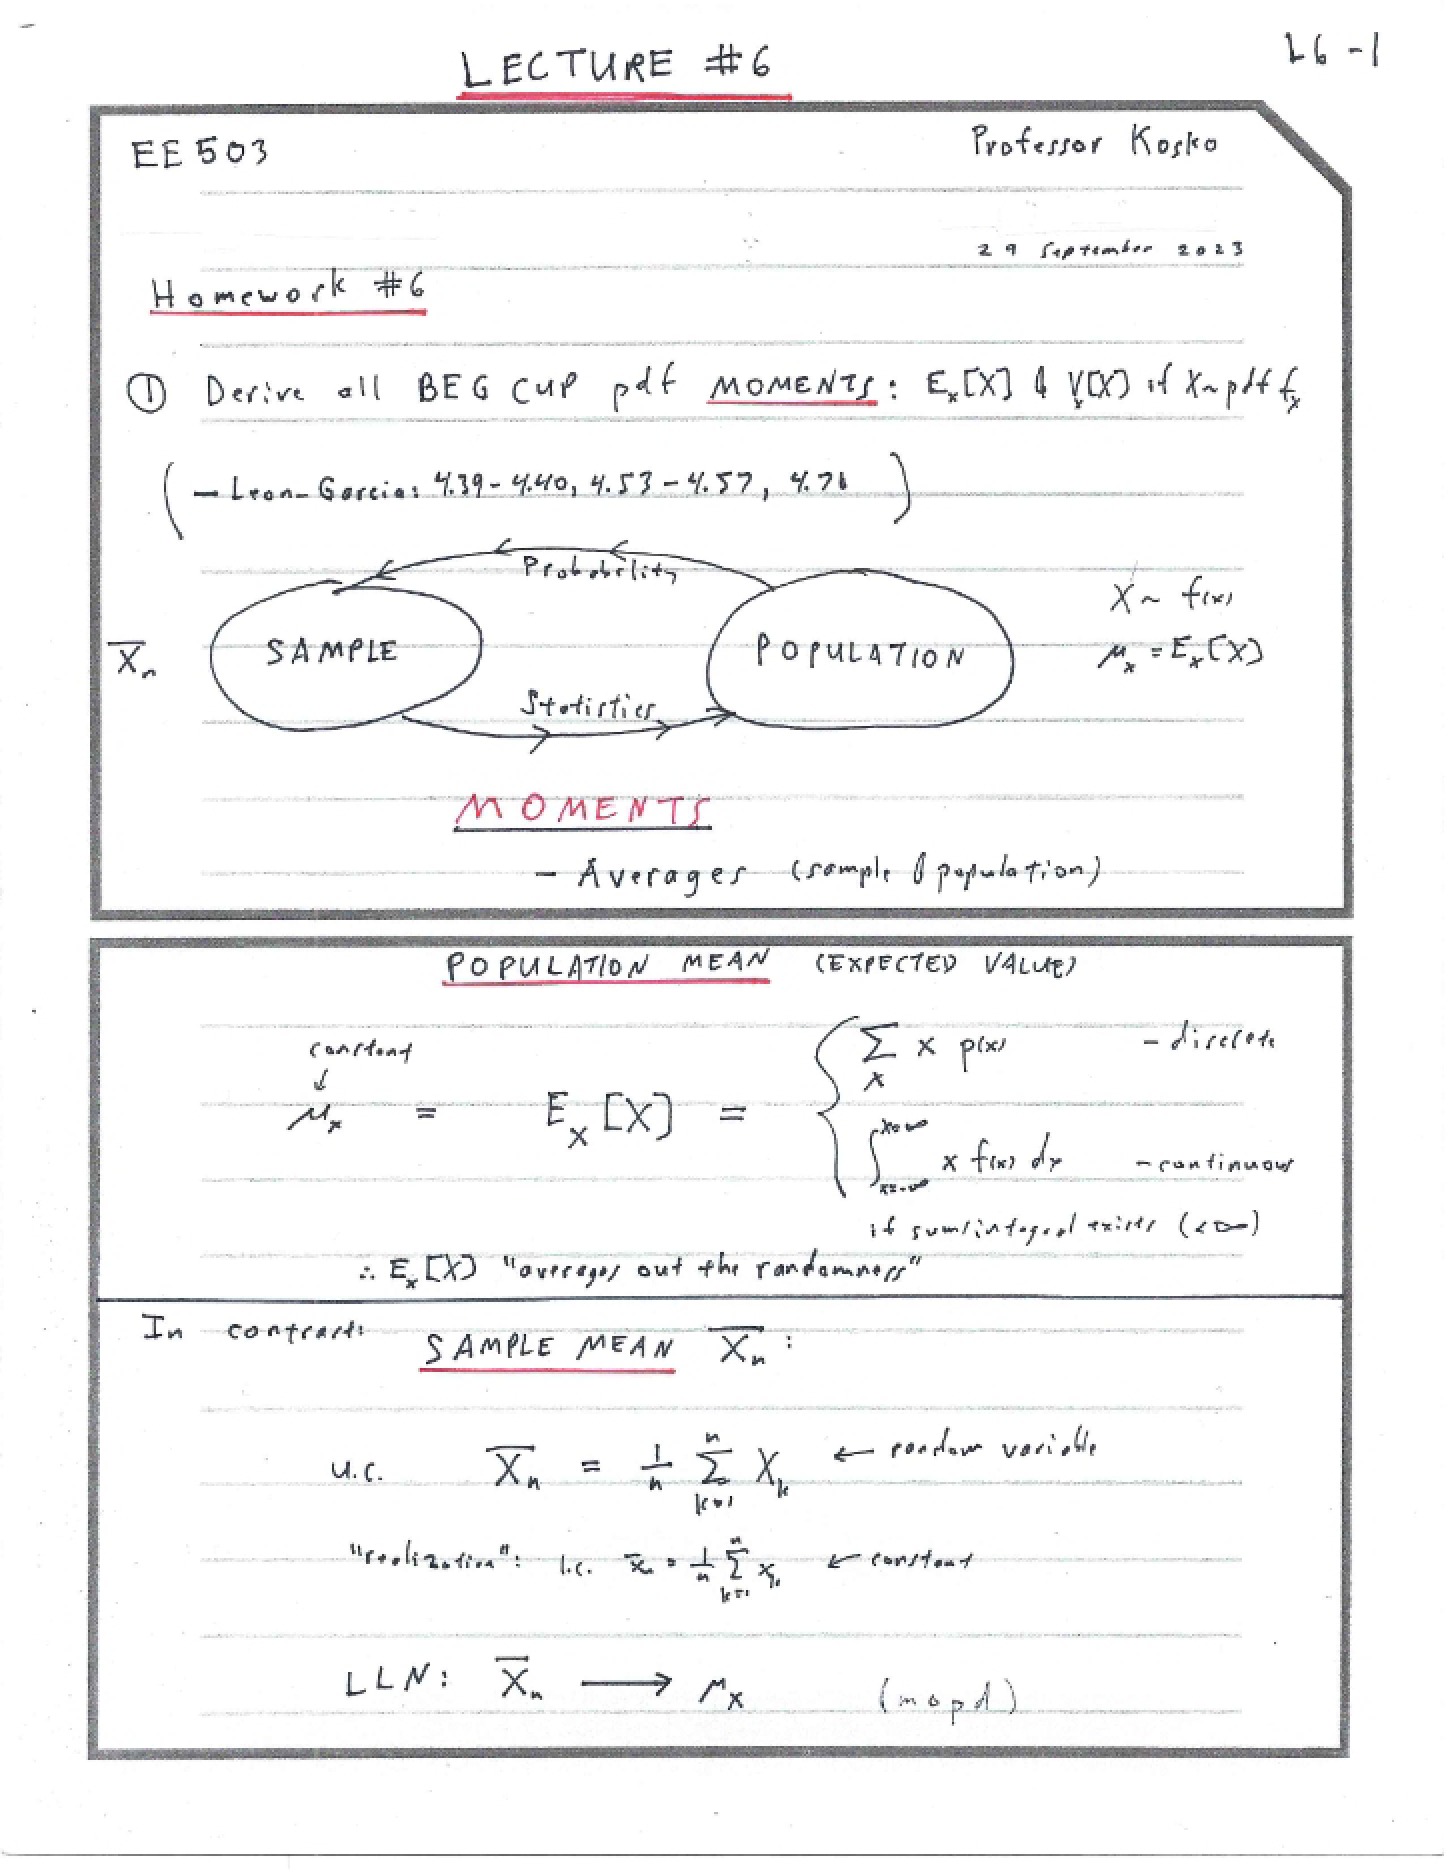 LECTURE #6
L6-1
EE 503
Professor Kosko
29 September 2023
Homework #6
① Derive all BEG CUP pdf MOMENTS: E_X[X] & V_X[X] if X~pdf f_X
(- Leon-Garcia: 4.39-4.40, 4.53-4.57, 4.71)
Probability
X̄_n SAMPLE POPULATION X ~ f(x)
μ_x = E_x[X]
Statistics
MOMENTS
- Averages (sample & population)
POPULATION MEAN (EXPECTED VALUE)
constant
↓
μ_x = E_X[X] = { ∑_x x p(x) - discrete
∫_{x=-∞}^{x=∞} x f(x) dx - continuous
if sum/integral exists (<∞)
∴ E_x[X] "averages out the randomness"
In contrast:
SAMPLE MEAN X̄_n:
u.c. X̄_n = 1/n ∑_{k=1}^n X_k ← random variable
"realization": l.c. x̄_n = 1/n ∑_{k=1}^n x_k ← constant
LLN: X̄_n → μ_X (mopd)